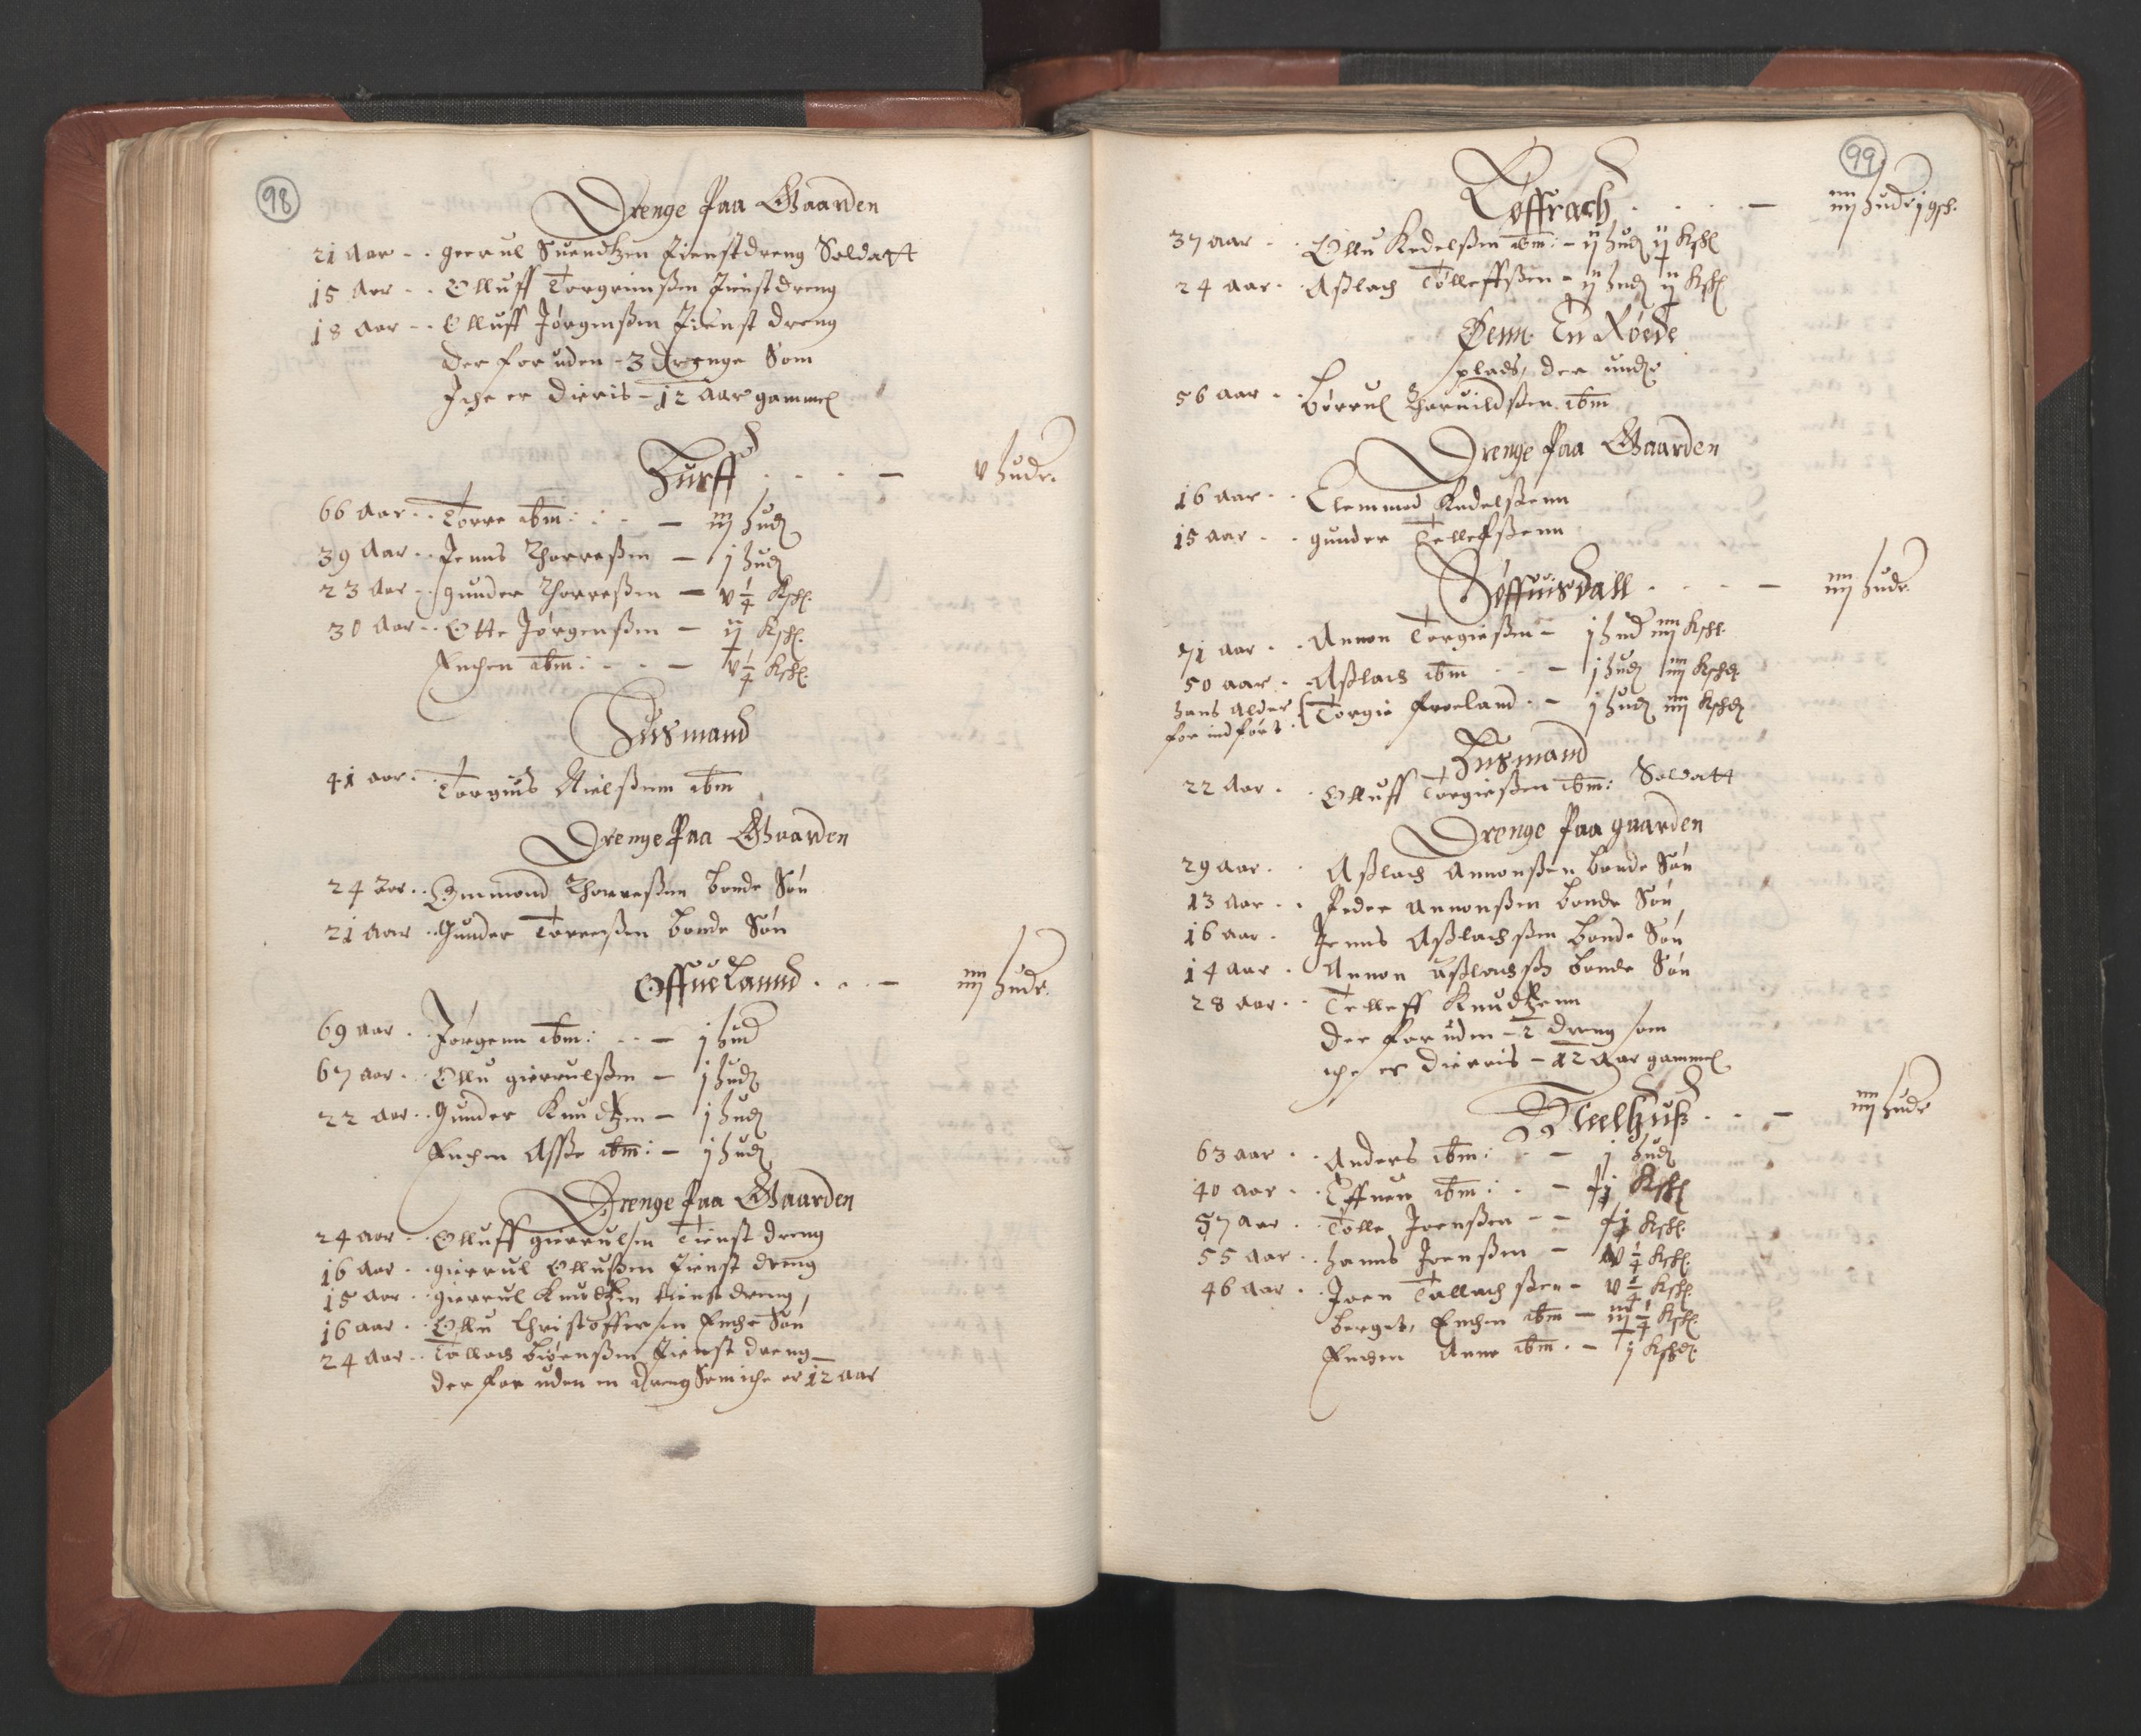 98
Drenge Paa Gaarden
21 Aar - . Gierul Suendtzen Tienstdreng Soldatt
15 Aar - . Olluff Torgrimßen Tienstdreng
18 Aar - . Olluff Jørgenßen Tienst dreng
der for uden - 3 Drenge Som
Iche er Dieris - 12 Aar gammel
Hurff . . . . — v Huder.
66 Aar . . Torre ibm : . . — iij Hud
39 Aar . . Jenns Thorreßen — j Hud
23 Aar . . gunder Thorreßen — v ¼ Ksk.
30 Aar . . Otte Jørgenßen — ij Ksk.
Enchen ibm : . . — v ¼ Ksk.
Husmand
41 aar . Torgius Nielßenn ibm
Drenge Paa Gaarden
24 Aar . . Ommond Thorreßen bonde Søn
21 Aar . . Gunder Torreßen bonde Søn
Offuelannd . . — iiij Huder.
69 aar . . Jørgenn ibm : . . — j Hud
67 aar . . Ollu gierrulßen — j Hud
22 aar . . Gunder Knudtzen — j Hud
Enchen Aße ibm : — j Hud
Drenge Paa Gaarden
24 aar . . Olluff gierrulsen Tienst dreng
16 aar . . gierrul Ollußen Tienst dreng
15 aar . . gierrul Knudtzen tienst dreng
16 aar . . Ollu Christoffersen Enche Søn
24 Aar . . Tallach Biøenßen Tienst dreng
der for uden en dreng Som iche er 12 aar
99
Røffrach . . . . — iiij Huder j gsk.
37 aar . . Ollu Kedelßen ibm : - ij Hud ij Ksk
24 aar . . Aßlach Tølleffßen - ij Hud ij Ksk
Øenn En Røede
plads, der under
56 aar . . Børrul Haruildßen ibm
Drenge Paa Gaarden
16 aar . . Clemmed Kedelßenn
15 aar . . gunder Tellefßenn
Røffuisdall . . . — iiij Huder
71 aar . . Annon Torgießen - j Hud iiij Ksk.
50 aar . . Aßlach ibm . . — j Hud iiij Ksk
Hans Alder
for indført { Torgie Frøeland . - j Hud iiij Ksk
Husmand
22 Aar . . Olluff Torgießen ibm : Soldatt
Drenge Paa gaarden
29 aar . . Aßlach Annonßen bonde Søn
13 aar . . Peder Annonßen bonde Søn
16 aar . Jenns Aßlachßen bonde Søn
14 aar . Annon Aßlachß: bonde Søn
28 aar . . Telleff Knudtzenn
der for uden - 2 dreng som
iche er dieris - 12 Aar gammel
Huelhuß . . — iiij Huder
63 aar . . Anders ibm : . — j Hud
40 aar . . Effuen ibm : . — Ksk
57 Aar . . Tolle Joenßen - - Ksk.
55 aar . . Hanns Joenßen - v ¼ Ksk.
46 aar . . Joen Tallachßen - v ¼ Ksk.
Berget, Enchen ibm — iij ¼ Ksk.
Enchen Anne ibm . - ij Ksk.